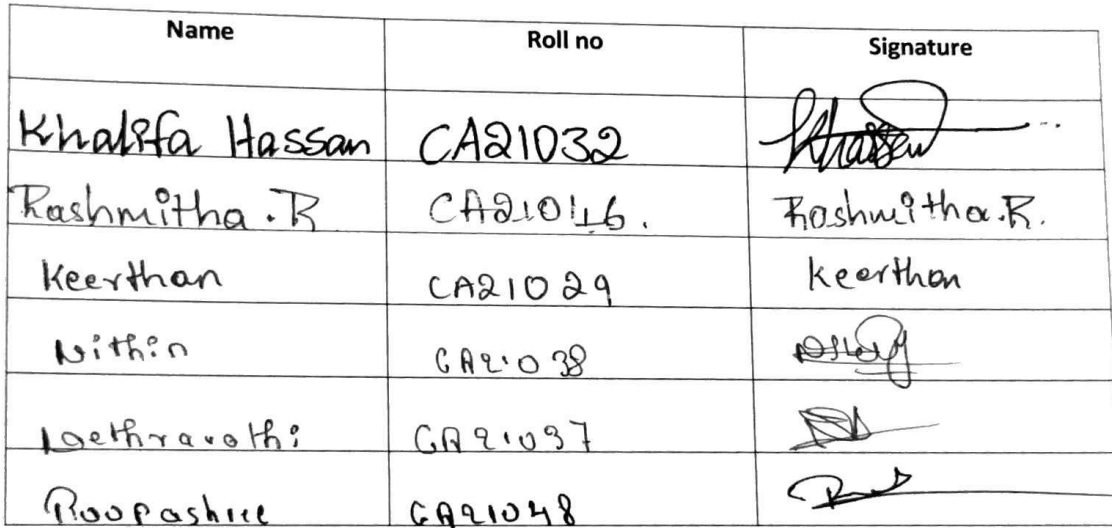 Name Roll no Signature
Khalifa Hassan CA21032 KHassan
Rashmitha.R CA21046. Rashmitha.R.
Keerthan CA21029 Keerthan
Nithin CA21038
Nethravathi CA21037
Roopashree CA21048